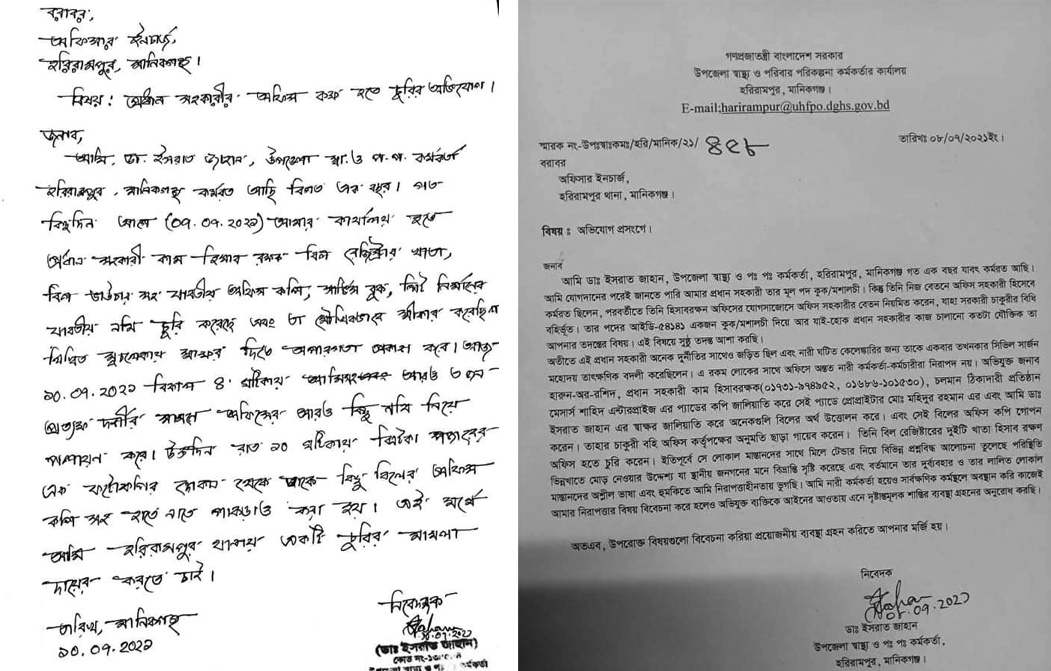 বরাবর,
অফিসার ইনচার্জ,
হরিরামপুর, মানিকগঞ্জ।
বিষয়: প্রধান সহকারীর অফিস কক্ষ হতে চুরির অভিযোগ।
জনাব,
আমি, ডা. ইসরাত জাহান, উপজেলা স্বা. ও প.প. কর্মকর্তা
হরিরামপুর, মানিকগঞ্জ কর্মরত আছি বিগত এক বছর। গত
কিছুদিন আগে (০৭.০৭.২০২১) আমার কার্যালয় হতে
প্রধান সহকারী কাম হিসাব রক্ষক বিল রেজিষ্টার খাতা,
বিল ভাউচার সহ যাবতীয় অফিস কপি,
যাবতীয় নথি চুরি করেছে এবং তা মৌখিকভাবে স্বীকার করেছে
লিখিত স্বাক্ষর দিতে অপারগতা প্রকাশ করে। আজ
১০.০৭.২০২১ বিকাল ৪ ঘটিকায় আরও ৩ জন
প্রত্যক্ষ দর্শীর সামনে অফিসের আরও কিছু নথি নিয়ে
পলায়ন করে। উক্তদিন রাত ১০ ঘটিকায় ঝিটকা
এক ফটোকপির দোকান থেকে তাকে কিছু বিলের অফিস
কপি সহ হাতে নাতে পাকড়াও করা হয়। এই মর্মে
আমি হরিরামপুর থানায় একটি চুরির মামলা
দায়ের করতে চাই।
তারিখ, মানিকগঞ্জ
১০.০৭.২০২১
নিবেদক
১০.০৭.২০২১
(ডাঃ ইসরাত জাহান)
গণপ্রজাতন্ত্রী বাংলাদেশ সরকার
উপজেলা স্বাস্থ্য ও পরিবার পরিকল্পনা কর্মকর্তার কার্যালয়
হরিরামপুর, মানিকগঞ্জ।
E-mail;harirampur@uhfpo.dghs.gov.bd
স্মারক নং-উপঃস্বাঃকমঃ/হরি/মানিক/২১/ ৪৫৮ তারিখঃ ০৮/০৭/২০২১ইং।
বরাবর
অফিসার ইনচার্জ,
হরিরামপুর থানা, মানিকগঞ্জ।
বিষয় : অভিযোগ প্রসংগে।
জনাব
আমি ডাঃ ইসরাত জাহান, উপজেলা স্বাস্থ্য ও পঃ পঃ কর্মকর্তা, হরিরামপুর, মানিকগঞ্জ গত এক বছর যাবৎ কর্মরত আছি।
আমি যোগদানের পরেই জানতে পারি আমার প্রধান সহকারী তার মূল পদ কুক/মশালচী। কিন্তু তিনি নিজ বেতনে অফিস সহকারী হিসেবে
কর্মরত ছিলেন, পরবর্তীতে তিনি হিসাবরক্ষন অফিসের যোগসাজোসে অফিস সহকারীর বেতন নিয়মিত করেন, যাহা সরকারী চাকুরীর বিধি
বহির্ভূত। তার পদের আইডি-৫৪১৪১ একজন কুক/মশালচী দিয়ে আর যাই-হোক প্রধান সহকারীর কাজ চালানো কতটা যৌক্তিক তা
আপনার তদন্তের বিষয়। এই বিষয়ে সুষ্ঠু তদন্ত আশা করছি।
অতীতে এই প্রধান সহকারী অনেক দুর্নীতির সাথেও জড়িত ছিল এবং নারী ঘটিত কেলেঙ্কারির জন্য তাকে একবার তখনকার সিভিল সার্জন
মহোদয় তাৎক্ষণিক বদলী করেছিলেন। এ রকম লোকের সাথে অফিসে অন্তত নারী কর্মকর্তা-কর্মচারীরা নিরাপদ নয়। অভিযুক্ত জনাব
হারুন-অর-রশিদ, প্রধান সহকারী কাম হিসাবরক্ষক(০১৭৩১-৯৭৪৯৫২, ০১৬৮৬-১০১৫৩০), চলমান ঠিকাদারী প্রতিষ্ঠান
মেসার্স শাহিদ এন্টারপ্রাইজ এর প্যাডের কপি জালিয়াতি করে সেই প্যাডে প্রোপ্রাইটার মোঃ মহিদুর রহমান এর এবং আমি ডাঃ
ইসরাত জাহান এর স্বাক্ষর জালিয়াতি করে অনেকগুলি বিলের অর্থ উত্তোলন করে। এবং সেই বিলের অফিস কপি গোপন
করেন। তাহার চাকুরী বহি অফিস কর্তৃপক্ষের অনুমতি ছাড়া গায়েব করেন। তিনি বিল রেজিষ্টারের দুইটি খাতা হিসাব রক্ষণ
অফিস হতে চুরি করেন। ইতিপূর্বে সে লোকাল মাস্তানদের সাথে মিলে টেন্ডার নিয়ে বিভিন্ন প্রশ্নবিদ্ধ আলোচনা তুলেছে পরিস্থিতি
ভিন্নখাতে মোড় নেওয়ার উদ্দেশ্য যা স্থানীয় জনগনের মনে বিভ্রান্তি সৃষ্টি করেছে এবং বর্তমানে তার দুর্ব্যবহার ও তার লালিত লোকাল
মাস্তানদের অশ্লীল ভাষা এবং হুমকিতে আমি নিরাপত্তাহীনতায় ভুগছি। আমি নারী কর্মকর্তা হয়েও সার্বক্ষণিক কর্মস্থলে অবস্থান করি কাজেই
আমার নিরাপত্তার বিষয় বিবেচনা করে হলেও অভিযুক্ত ব্যক্তিকে আইনের আওতায় এনে দৃষ্টান্তমূলক শাস্তির ব্যবস্থা গ্রহনের অনুরোধ করছি।
অতএব, উপরোক্ত বিষয়গুলো বিবেচনা করিয়া প্রয়োজনীয় ব্যবস্থা গ্রহন করিতে আপনার মর্জি হয়।
নিবেদক
০৮.০৭.২০২১
ডাঃ ইসরাত জাহান
উপজেলা স্বাস্থ্য ও পঃ পঃ কর্মকর্তা,
হরিরামপুর, মানিকগঞ্জ।